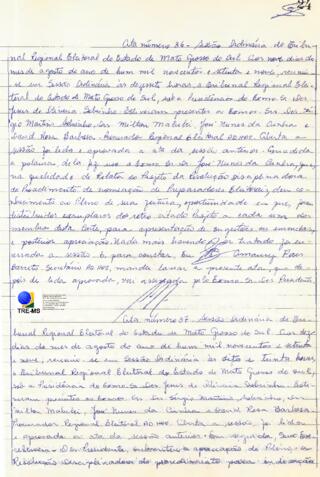 Ata número 36 - Sessão Ordinária do Tribu-
nal Regional Eleitoral do Estado de Mato Grosso do Sul. Aos nove dias do
mês de agosto do ano de hum mil novecentos e setenta e nove, reuniu-
se em Sessão Ordinária às dezoito horas o Tribunal Regional Eleito-
ral do Estado de Mato Grosso do Sul, sob a Presidência do Exmo. Sr. Des.
Jesus de Oliveira Sobrinho. Estiveram presentes os Exmos. Srs. Des. Sér-
gio Martins Sobrinho, Drs. Milton Malulei, José Nunes da Cunha e
David Rosa Barbosa - Procurador Regional Eleitoral ad hoc. Aberta a
sessão foi lida e aprovada a ata da sessão anterior. Concedida
a palavra, dela fez uso o Exmo. Sr. Dr. José Nunes da Cunha, que
na qualidade de Relator do Projeto da Resolução disciplinadora
do Procedimento de nomeação de Preparadores Eleitorais, deu co-
nhecimento ao Pleno de sua feitura, oportunidade em que, foi
distribuído exemplares do retro citado Projeto a cada um dos
membros desta Corte, para apresentação de sugestões ou emendas,
e posterior aprovação. Nada mais havendo a ser tratado foi en-
cerrada a sessão. E, para constar, Eu Amaury Rosa
Barreto Secretário ad hoc, mandei lavrar a presente ata, que de-
pois de lida e aprovada, vai assinada pelo Exmo. Sr. Des. Presidente.
TRE-MS
Ata número 37 - Sessão Ordinária do Tri-
bunal Regional Eleitoral do Estado de Mato Grosso do Sul. Aos dez
dias do mês de agosto do ano de hum mil novecentos e setenta
e nove, reuniu-se em Sessão Ordinária às sete e trinta horas
o Tribunal Regional Eleitoral do Estado de Mato Grosso do Sul,
sob a Presidência do Exmo. Sr. Des. Jesus de Oliveira Sobrinho. Esti-
veram presentes os Exmos. Srs. Des. Sérgio Martins Sobrinho, Drs.
Milton Malulei, José Nunes da Cunha e David Rosa Barbosa
Procurador Regional Eleitoral ad hoc. Aberta a sessão, foi lida
e aprovada a ata da sessão anterior. Em seguida, Sua Exce-
lência o Des. Presidente, submeteu a apreciação do Pleno, a
Resolução disciplinadora do procedimento para a